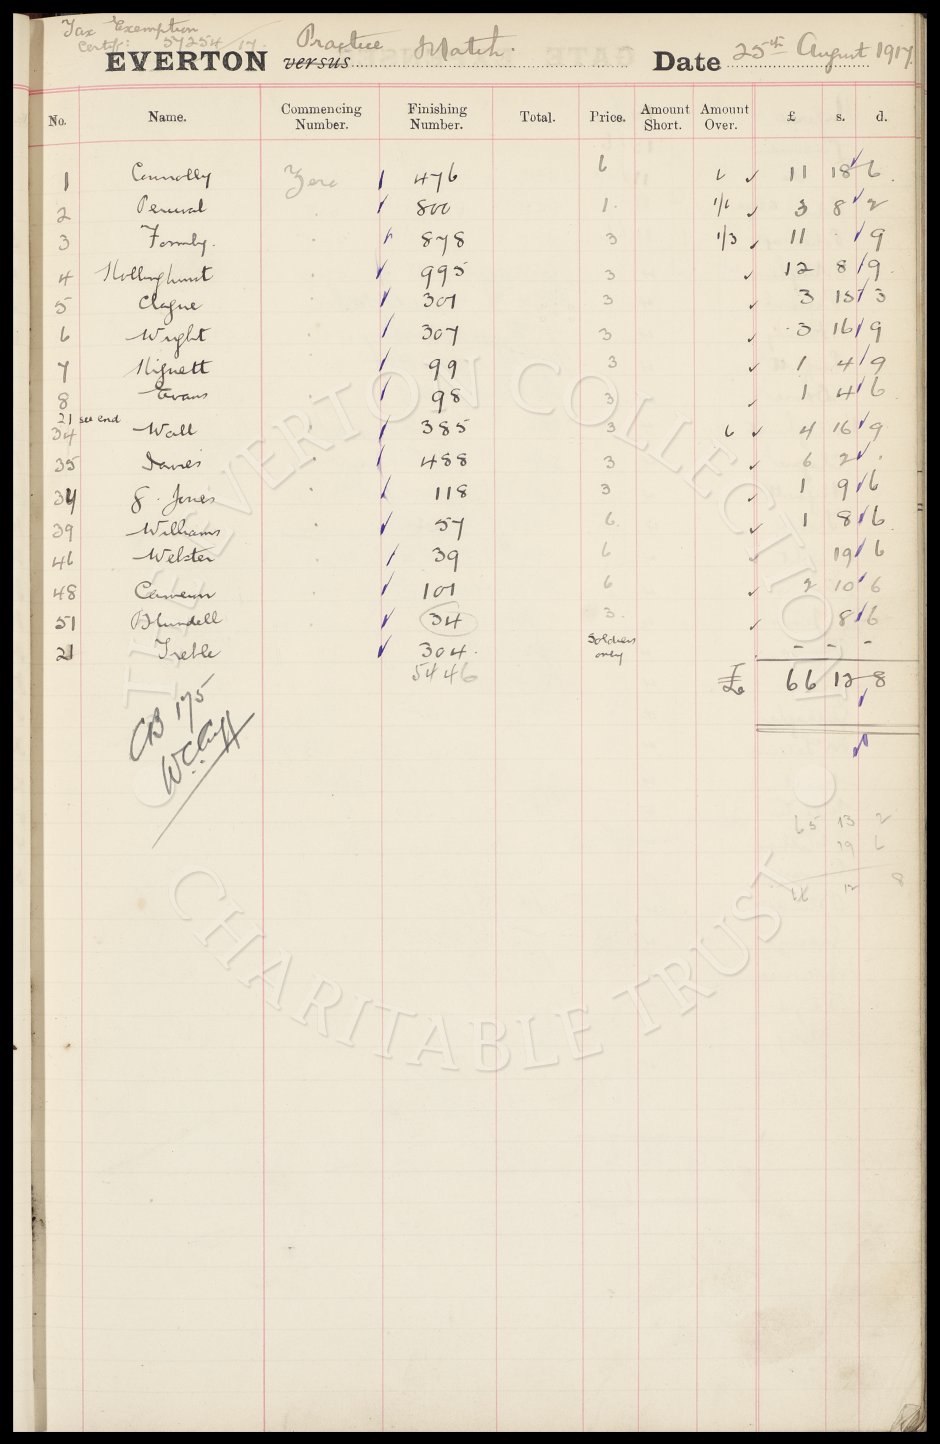 Tax Exemption
Certif: 57254/17.
EVERTON versus Practice Match. Date 25th August 1917.
No. Name. Commencing Number. Finishing Number. Total. Price. Amount Short. Amount Over. £ s. d.
1 Connolly Zero 476 6 6 11 18 6
2 Percival . 800 1. 1/6 3 8 2
3 Formby. . 878 3 1/3 11 . 9
4 Hollinghurst . 995 3 12 8 9
5 Clague . 301 3 3 15 3
6 Wright . 307 3 3 16 9
7 Hignett . 99 3 1 4 9
8 Evans . 98 3 1 4 6
21 see end
34 Wall . 385 3 6 4 16 9
35 Davies . 488 3 6 2 .
34 J. Jones . 118 3 1 9 6
39 Williams . 57 6 1 8 6
46 Webster . 39 6 19 6
48 Cameron . 101 6 2 10 6
51 Blundell . 34 3. 8 6
21 Treble 304. Soldiers only - - -
5446 £ 66 12 8
CB 175
W.C. Cuff
65 13 2
19 6
66 12 8
THE EVERTON COLLECTION
CHARITABLE TRUST